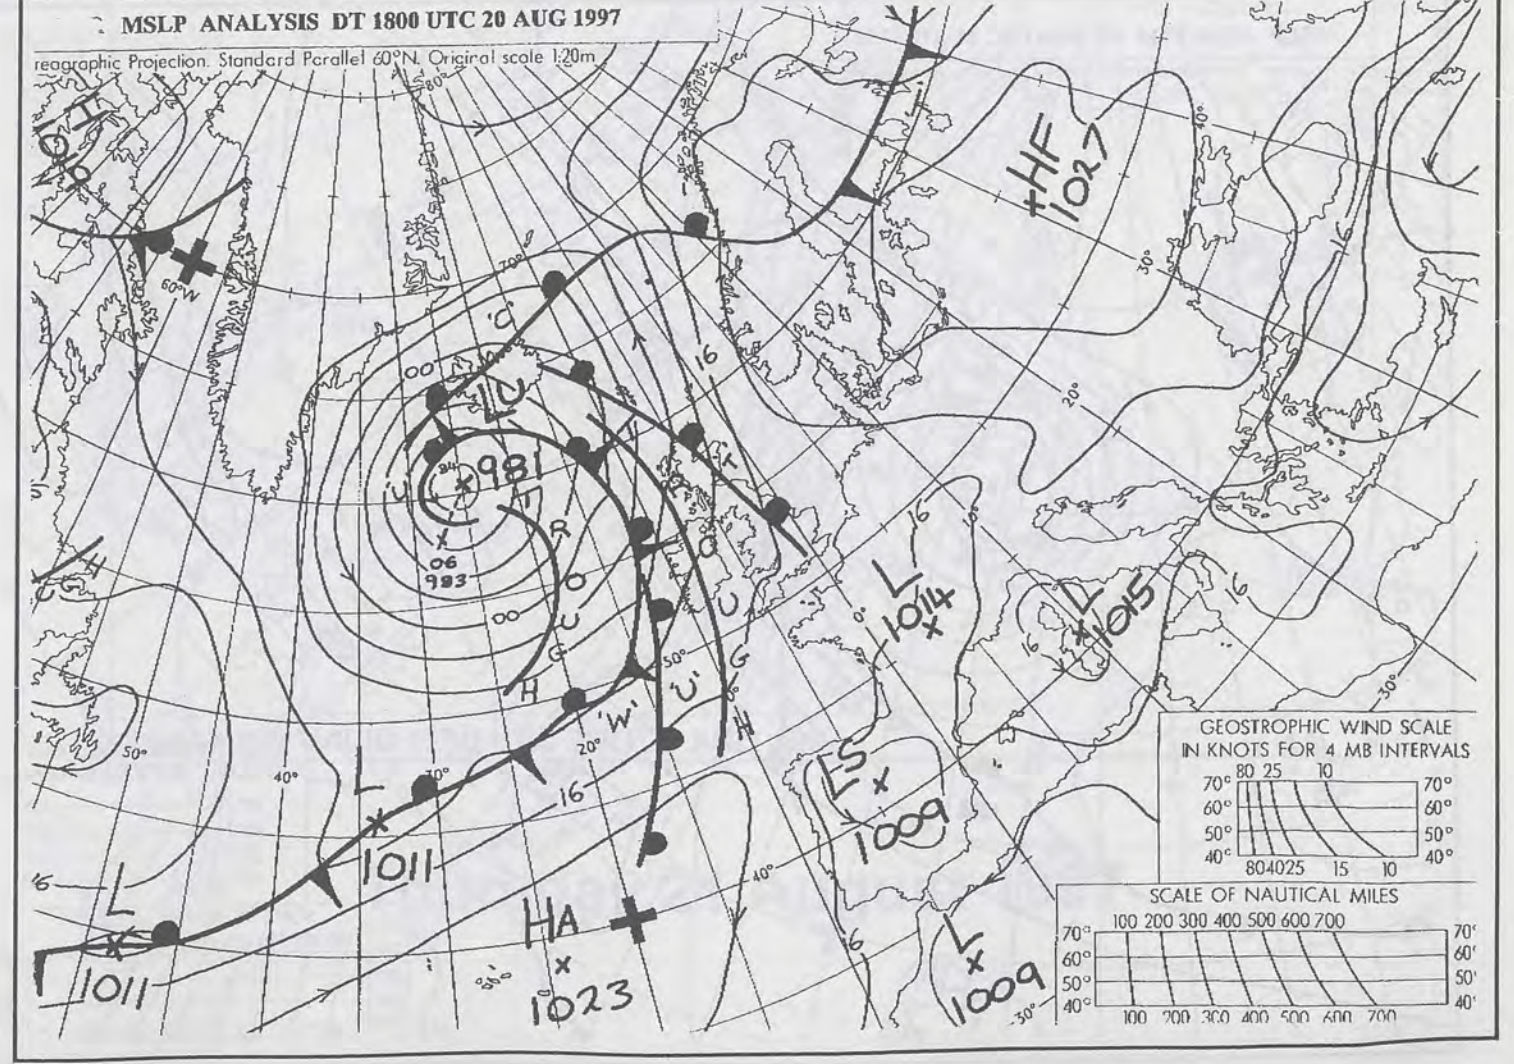 MSLP ANALYSIS DT 1800 UTC 20 AUG 1997
reographic Projection. Standard Parallel 60°N. Original scale 1:20m
80°
H
60°W
70°
'C'
00
LU
981
06
983
00
T
R
O
U
G
H
T
R
O
U
G
H
16
+HF
1027
40°
30°
20°
16
16
L
1014
0°
L
1015
16
16
30°
50°
'U'
'W'
20°
30°
40°
50°
L
1011
16
L
1011
16
HA
1023
40°
LS
1009
L
1009
30°
16
GEOSTROPHIC WIND SCALE
IN KNOTS FOR 4 MB INTERVALS
80 25 10
70° 70°
60° 60°
50° 50°
40° 40°
804025 15 10
SCALE OF NAUTICAL MILES
100 200 300 400 500 600 700
70° 70°
60° 60°
50° 50°
40° 40°
100 200 300 400 500 600 700